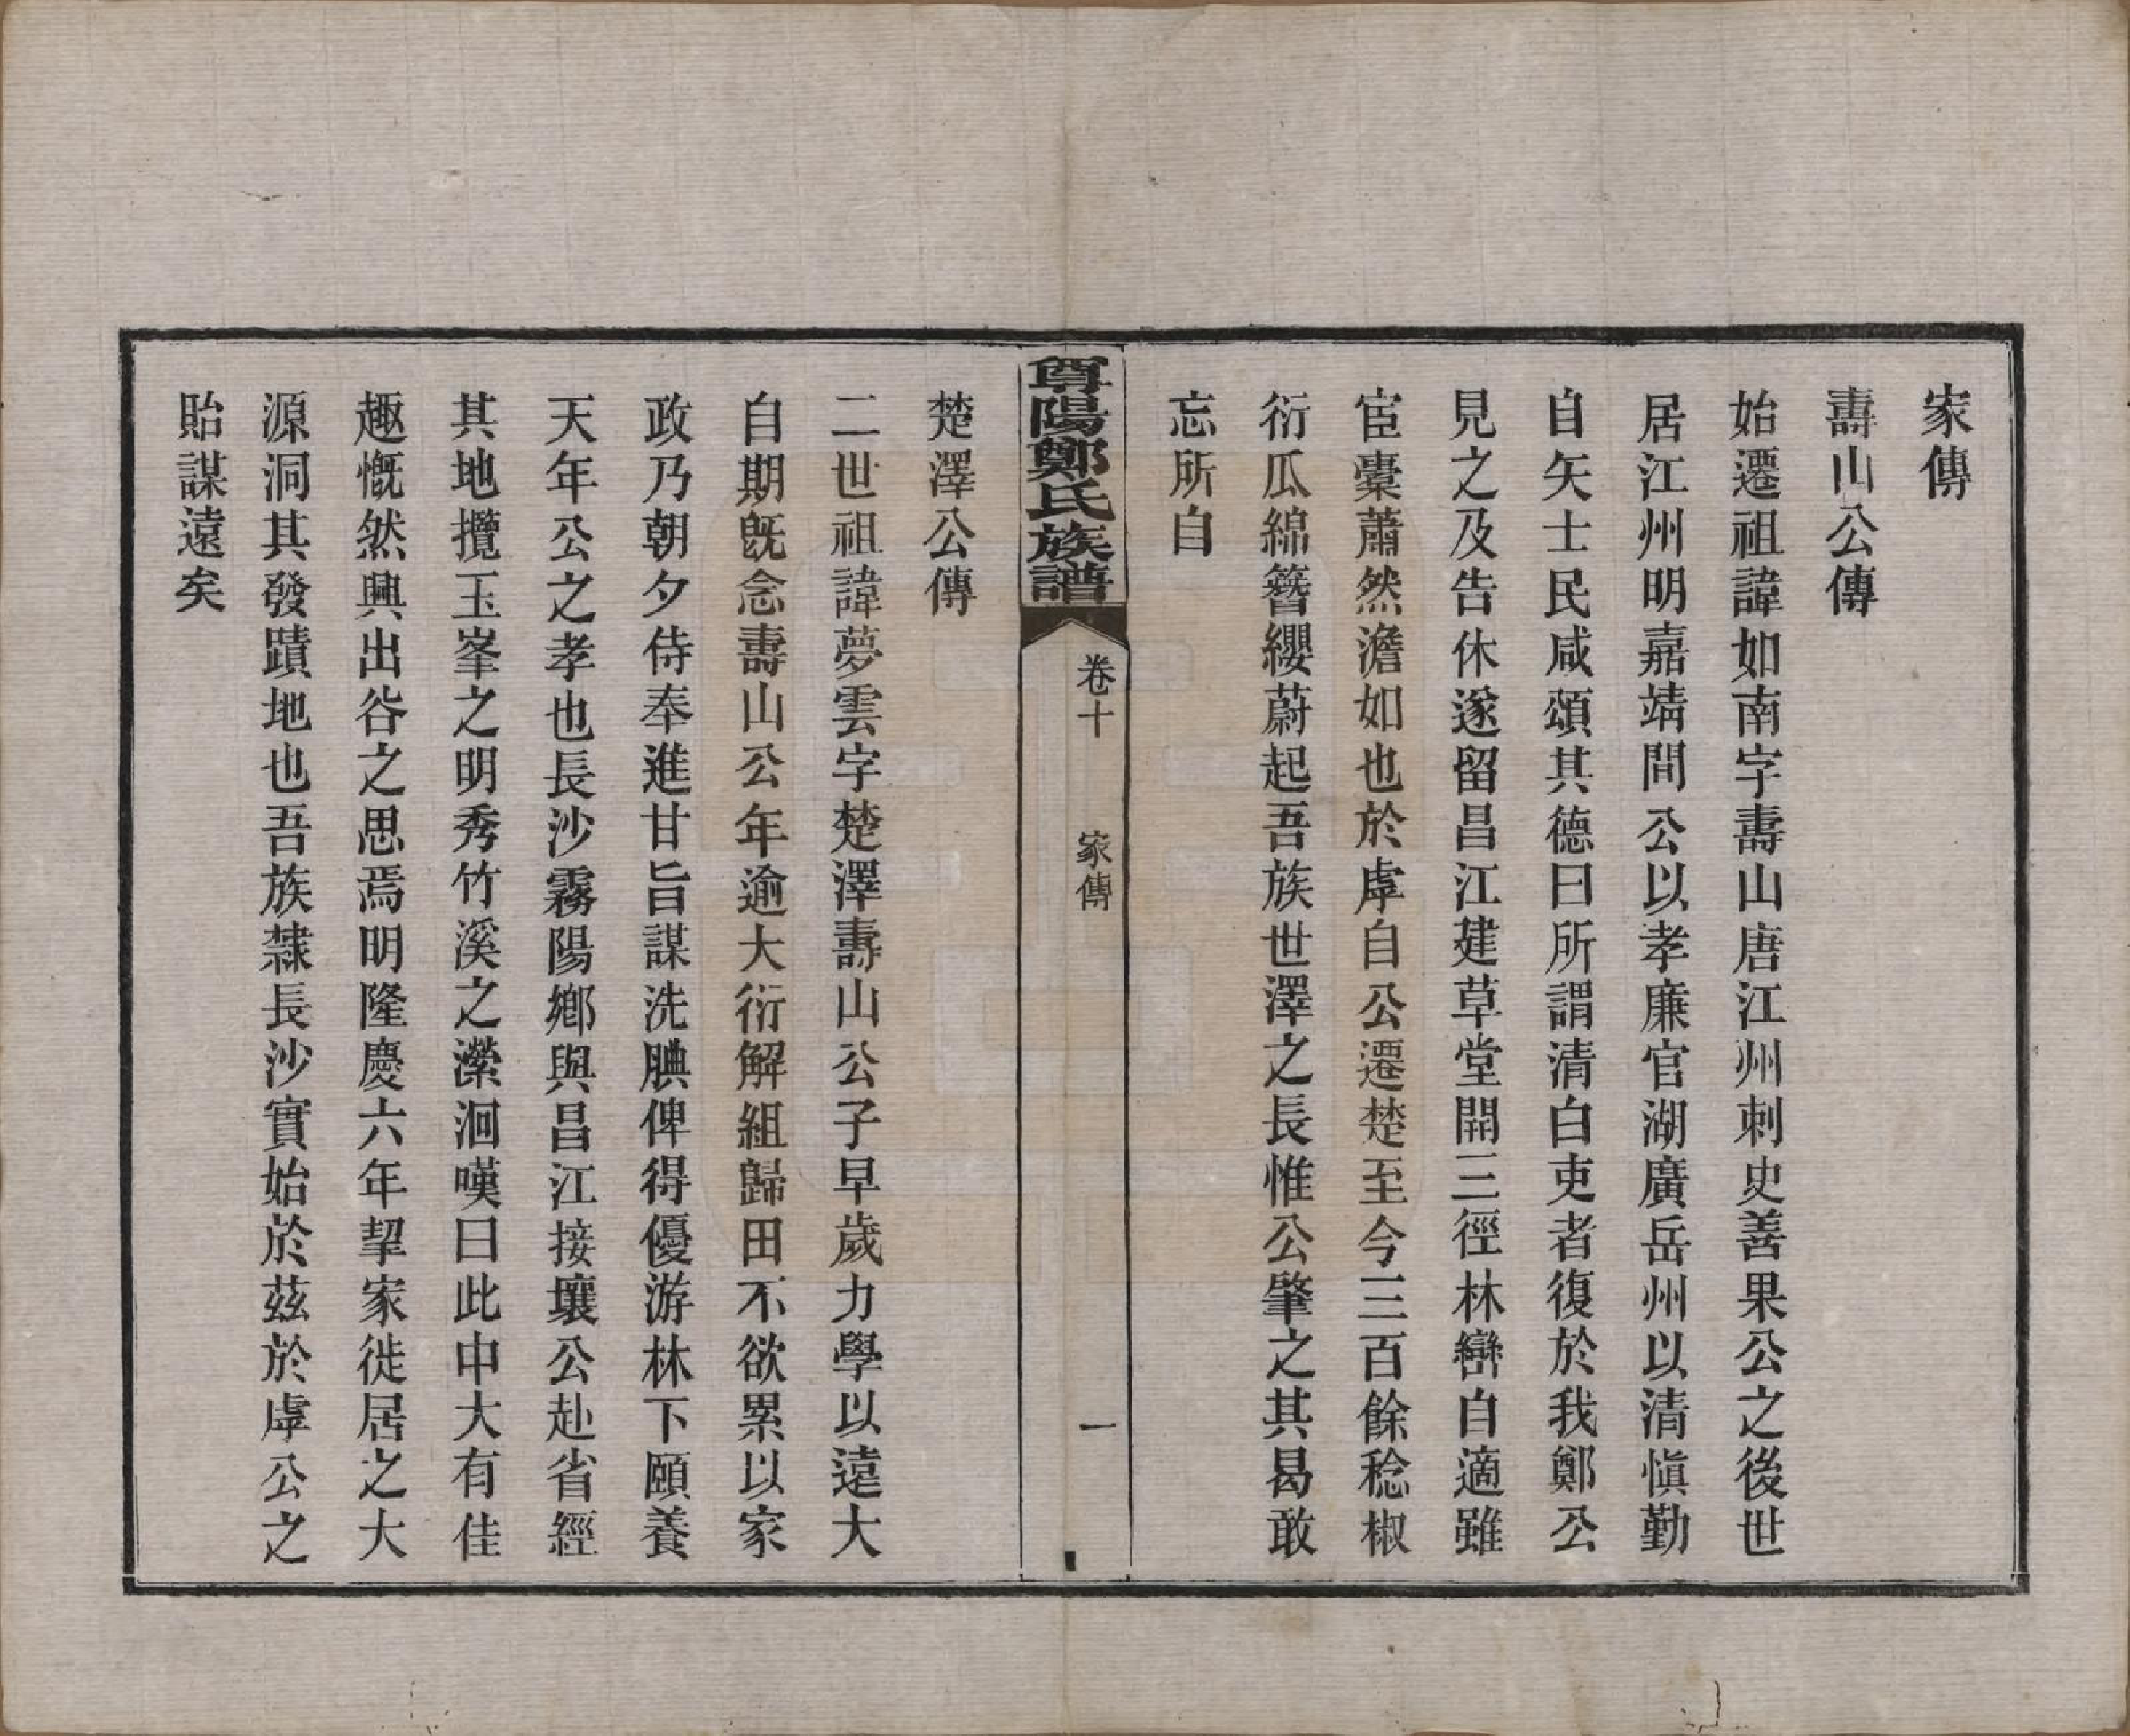 家傳
壽山公傳
始遷祖諱如南字壽山唐江州刺史善果公之後世
居江州明嘉靖間公以孝廉官湖廣岳州以清愼勤
自矢士民咸頌其德曰所謂清白吏者復於我鄭公
見之及告休遂留昌江建草堂開三徑林巒自適雖
宦橐蕭然澹如也於虖自公遷楚至今三百餘稔椒
衍瓜綿簪纓蔚起吾族世澤之長惟公肇之其曷敢
忘所自
尊陽鄭氏族譜
卷十
家傳
一
楚澤公傳
二世祖諱夢雲字楚澤壽山公子早歲力學以遠大
自期旣念壽山公年逾大衍解組歸田不欲累以家
政乃朝夕侍奉進甘旨謀洗腆俾得優游林下頤養
天年公之孝也長沙霧陽鄉與昌江接壤公赴省經
其地攬玉峯之明秀竹溪之瀠洄嘆曰此中大有佳
趣慨然興出谷之思焉明隆慶六年挈家徙居之大
源洞其發蹟地也吾族隸長沙實始於茲於虖公之
貽謀遠矣